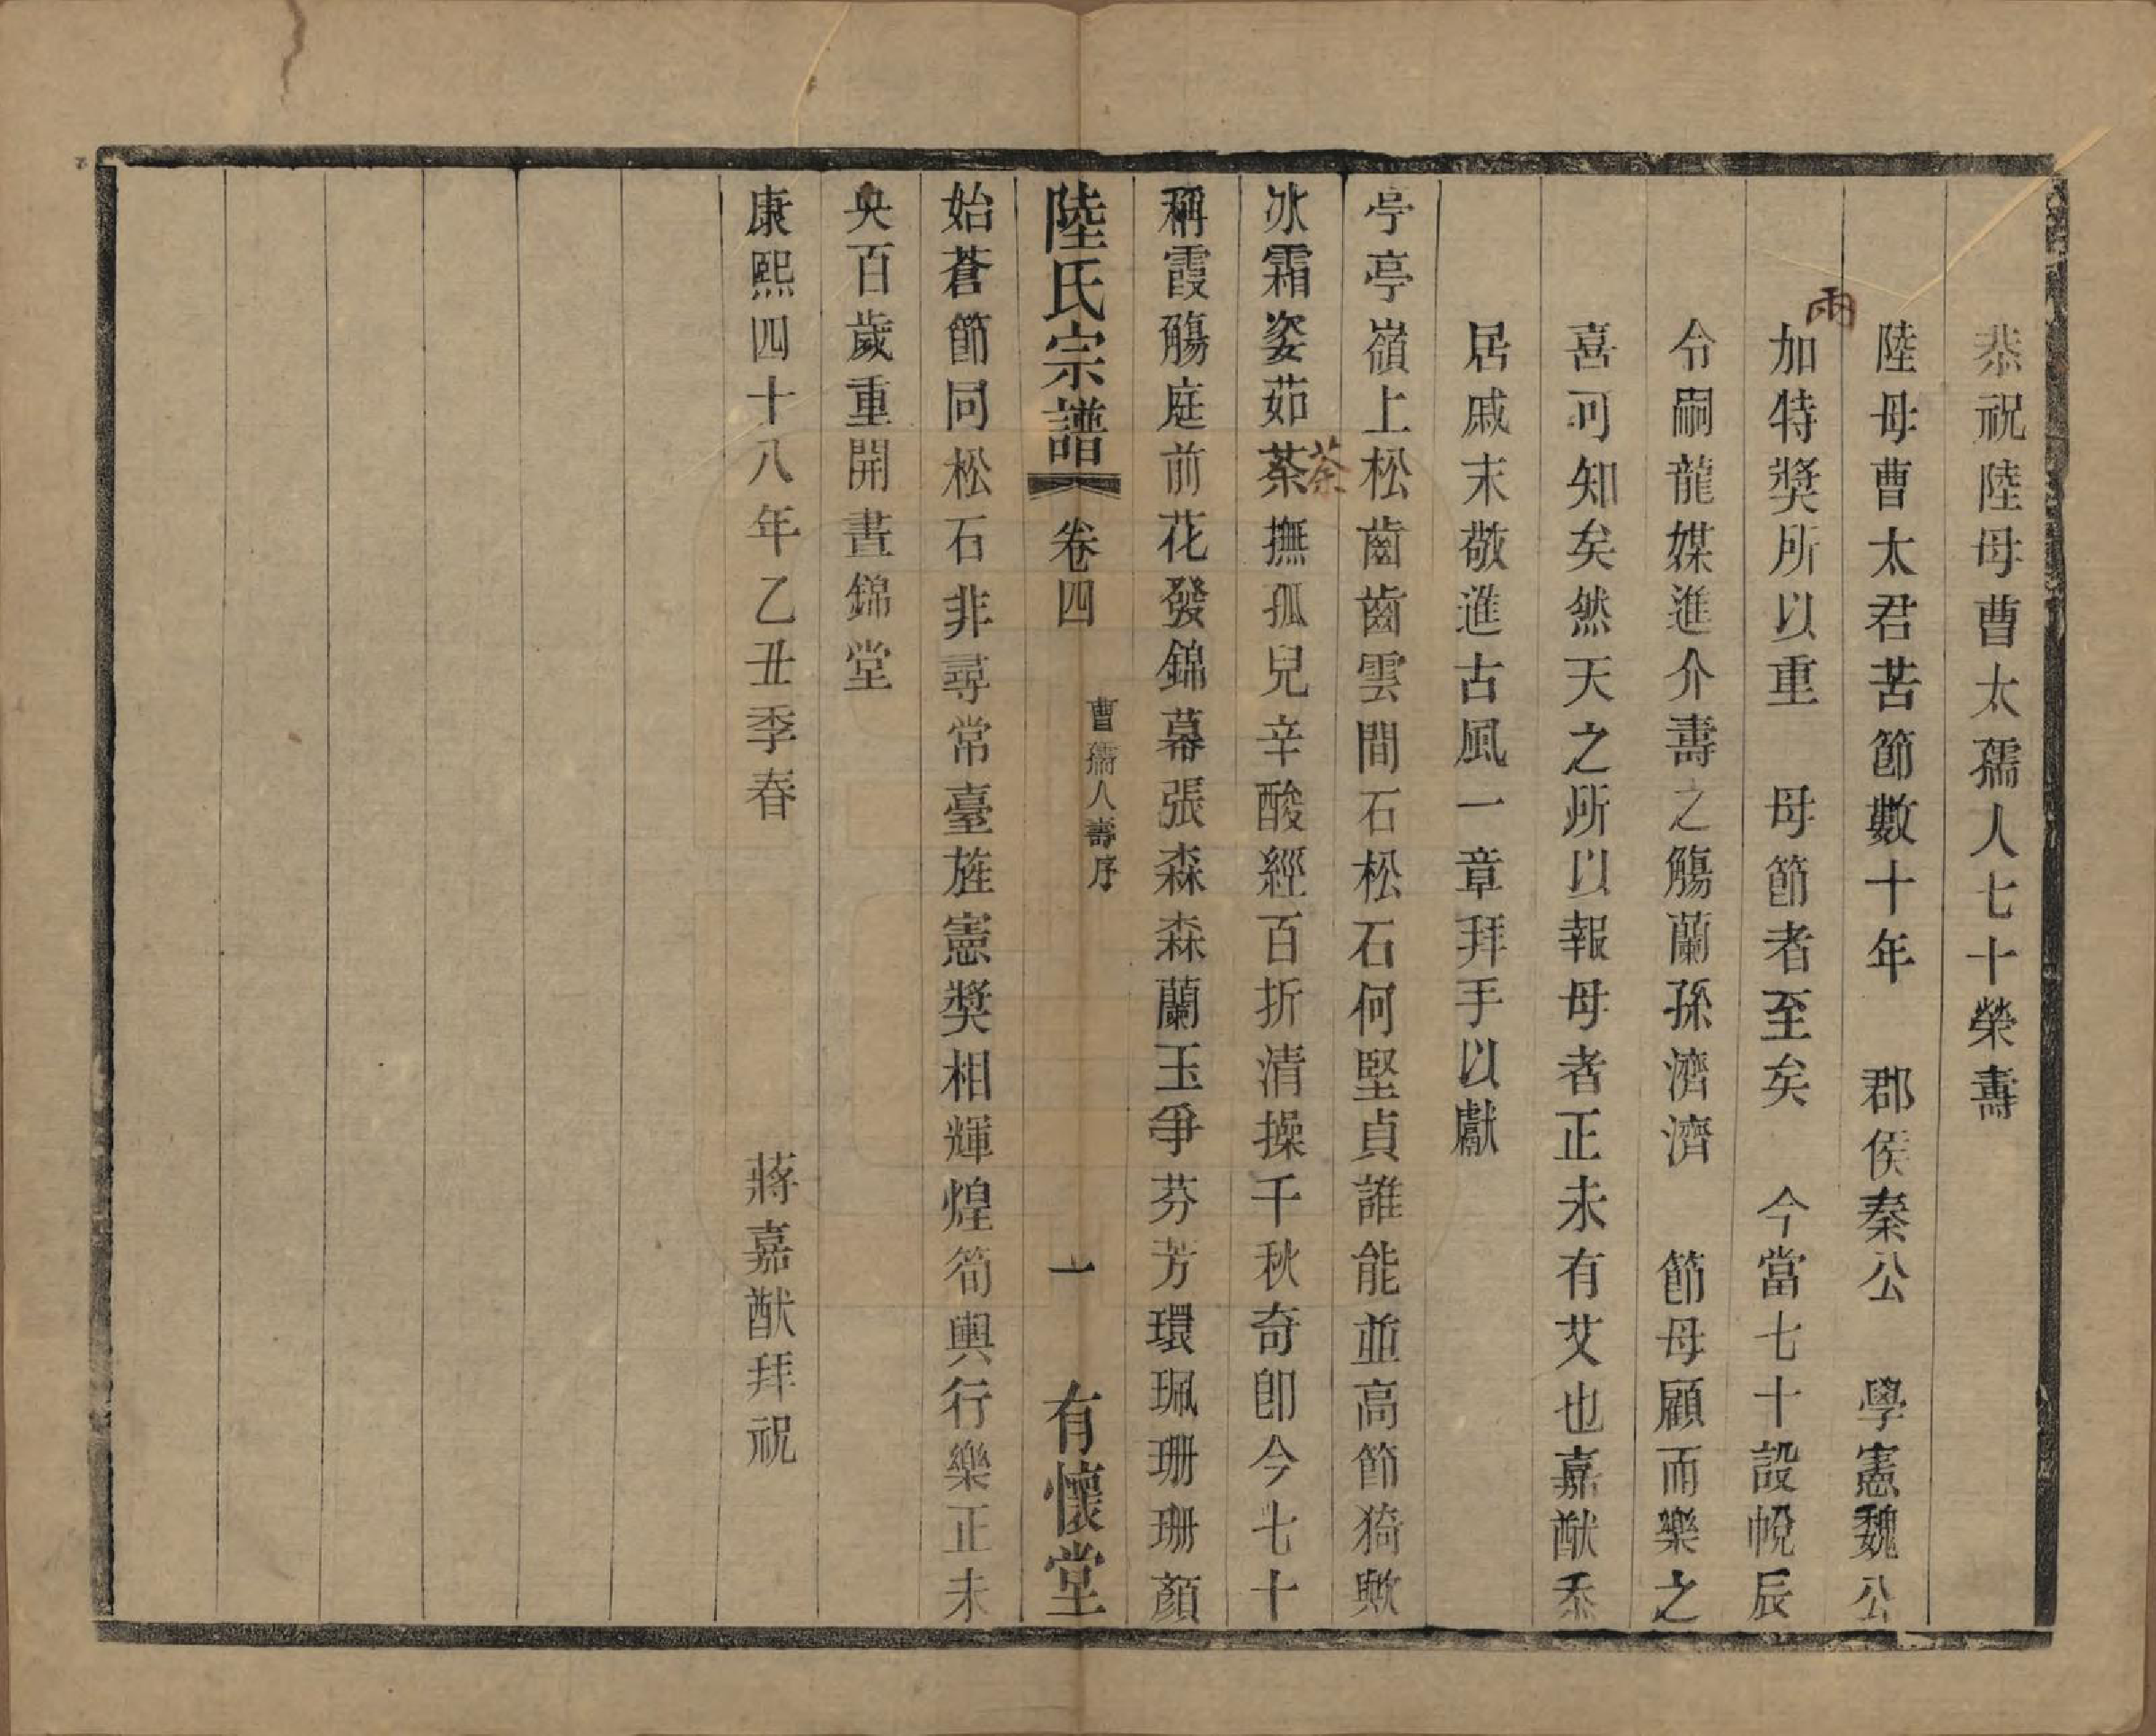 恭祝陸母曹太孺人七十榮壽
陸母曹太君苦節數十年　郡侯秦公　學憲魏公
兩
加特獎所以重　母節者至矣　今當七十設帨辰
令嗣龍媒進介壽之觴蘭孫濟濟　節母顧而樂之
喜可知矣然天之所以報母者正未有艾也嘉猷忝
居戚末敬進古風一章拜手以獻
亭亭嶺上松齒齒雲間石松石何堅貞誰能並高節猗歟
冰霜姿茹荼撫孤兒辛酸經百折清操千秋奇卽今七十
荼
稱霞觴庭前花發錦幕張森森蘭玉爭芬芳環珮珊珊顏
陸氏宗譜　卷四　曹孺人壽序　一　有懷堂
始蒼節同松石非尋常臺旌憲獎相輝煌筍輿行樂正未
央百歲重開晝錦堂
康熙四十八年乙丑季春　蔣嘉猷拜祝